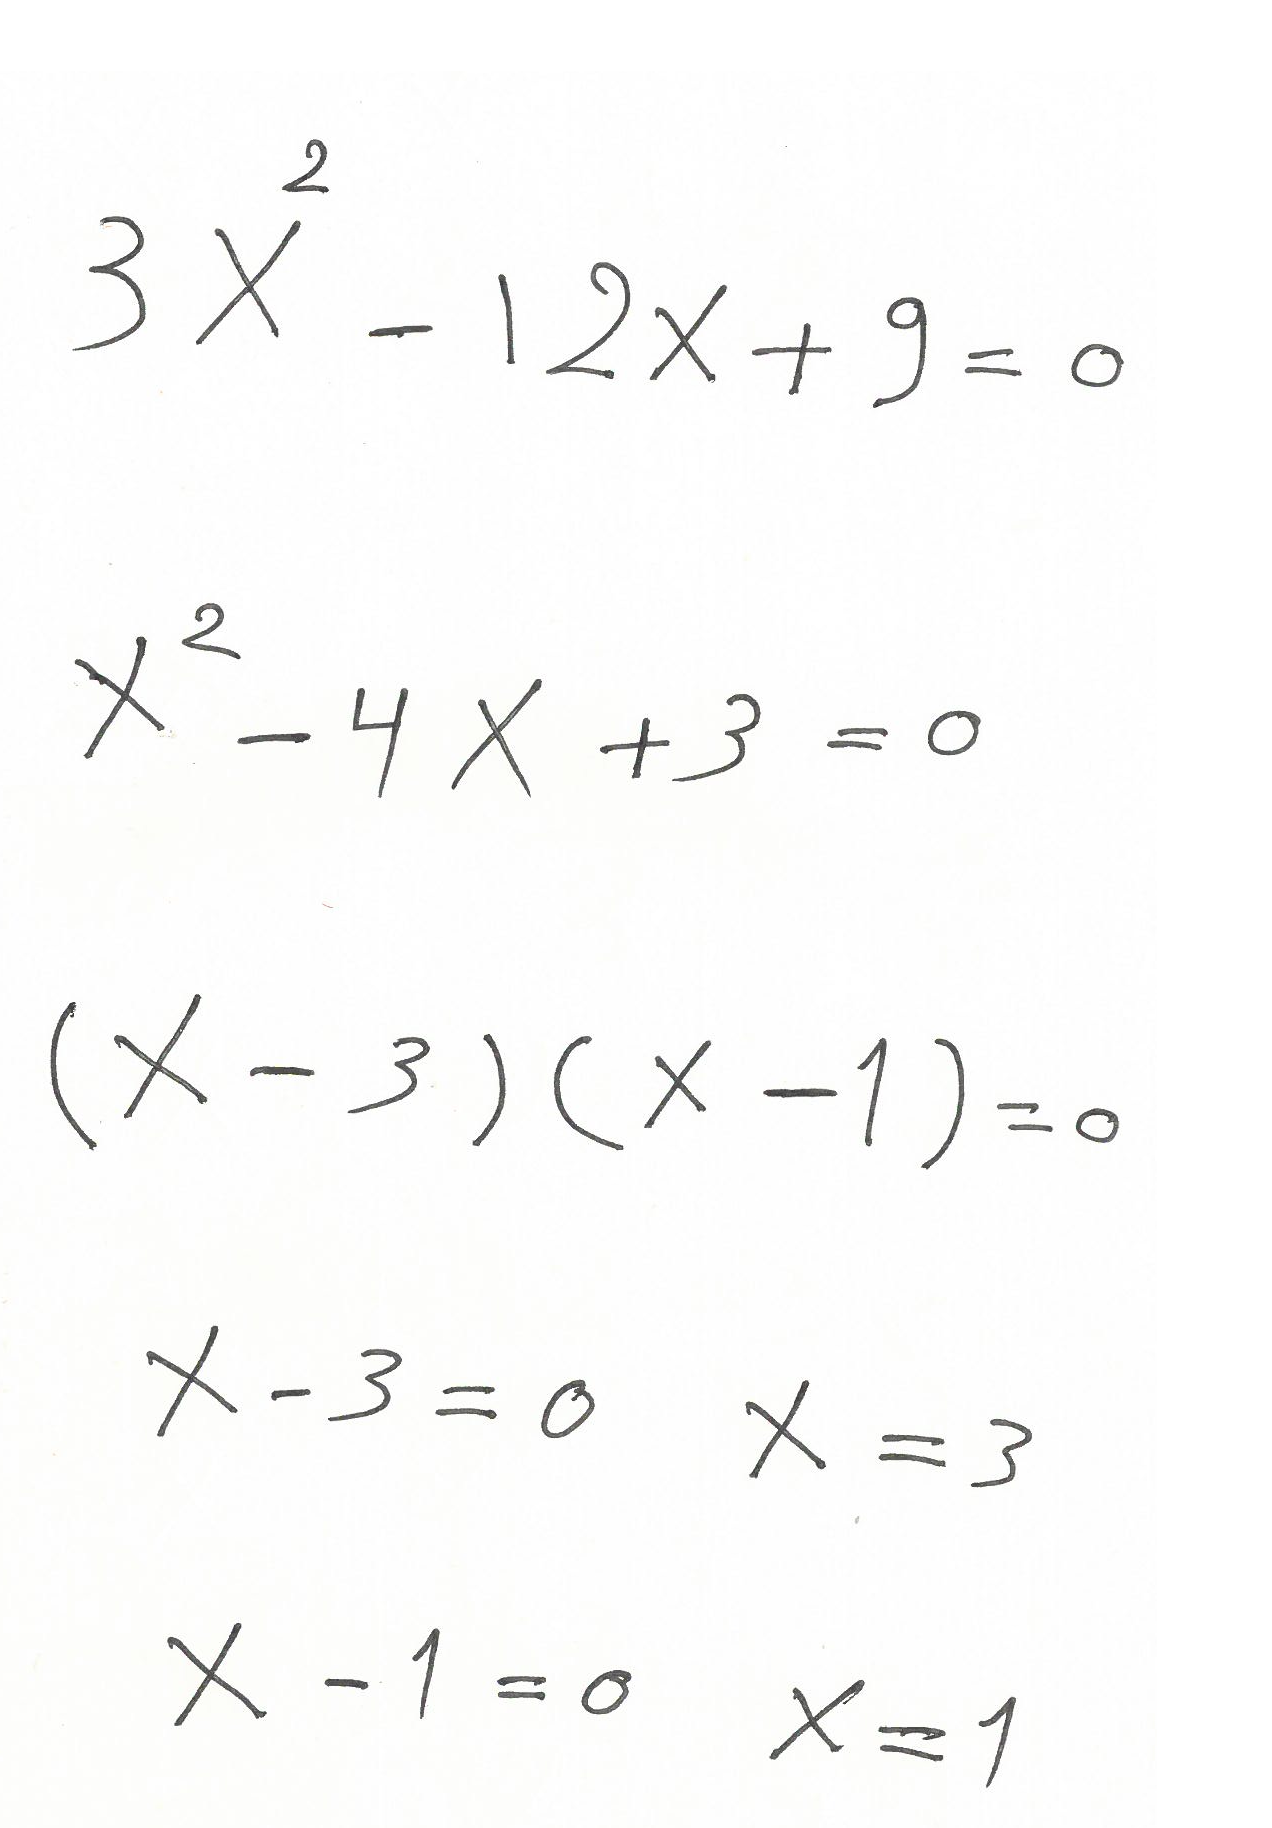 3x² - 12x + 9 = 0
x² - 4x + 3 = 0
(x - 3)(x - 1) = 0
x - 3 = 0 x = 3
x - 1 = 0 x = 1